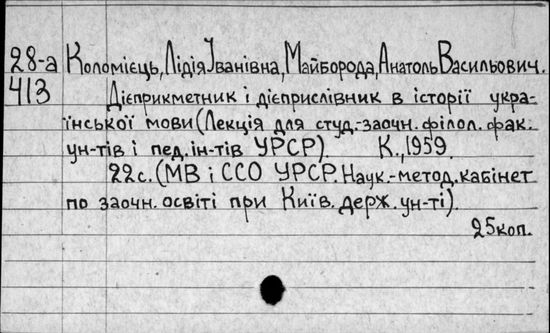 28-а Коломієць, Лідія Іванівна, Майборода, Анатоль Васильович.
413 Дієприкметник і дієприслівник в історії укра-
їнської мови (Лекція для студ.-заочн. філол. фак.
ун-тів і пед. ін-тів УРСР). К., 1959.
22с. (МВ і ССО УРСР. Наук.-метод. кабінет
по заочн. освіті при Київ. держ. ун-ті).
25коп.